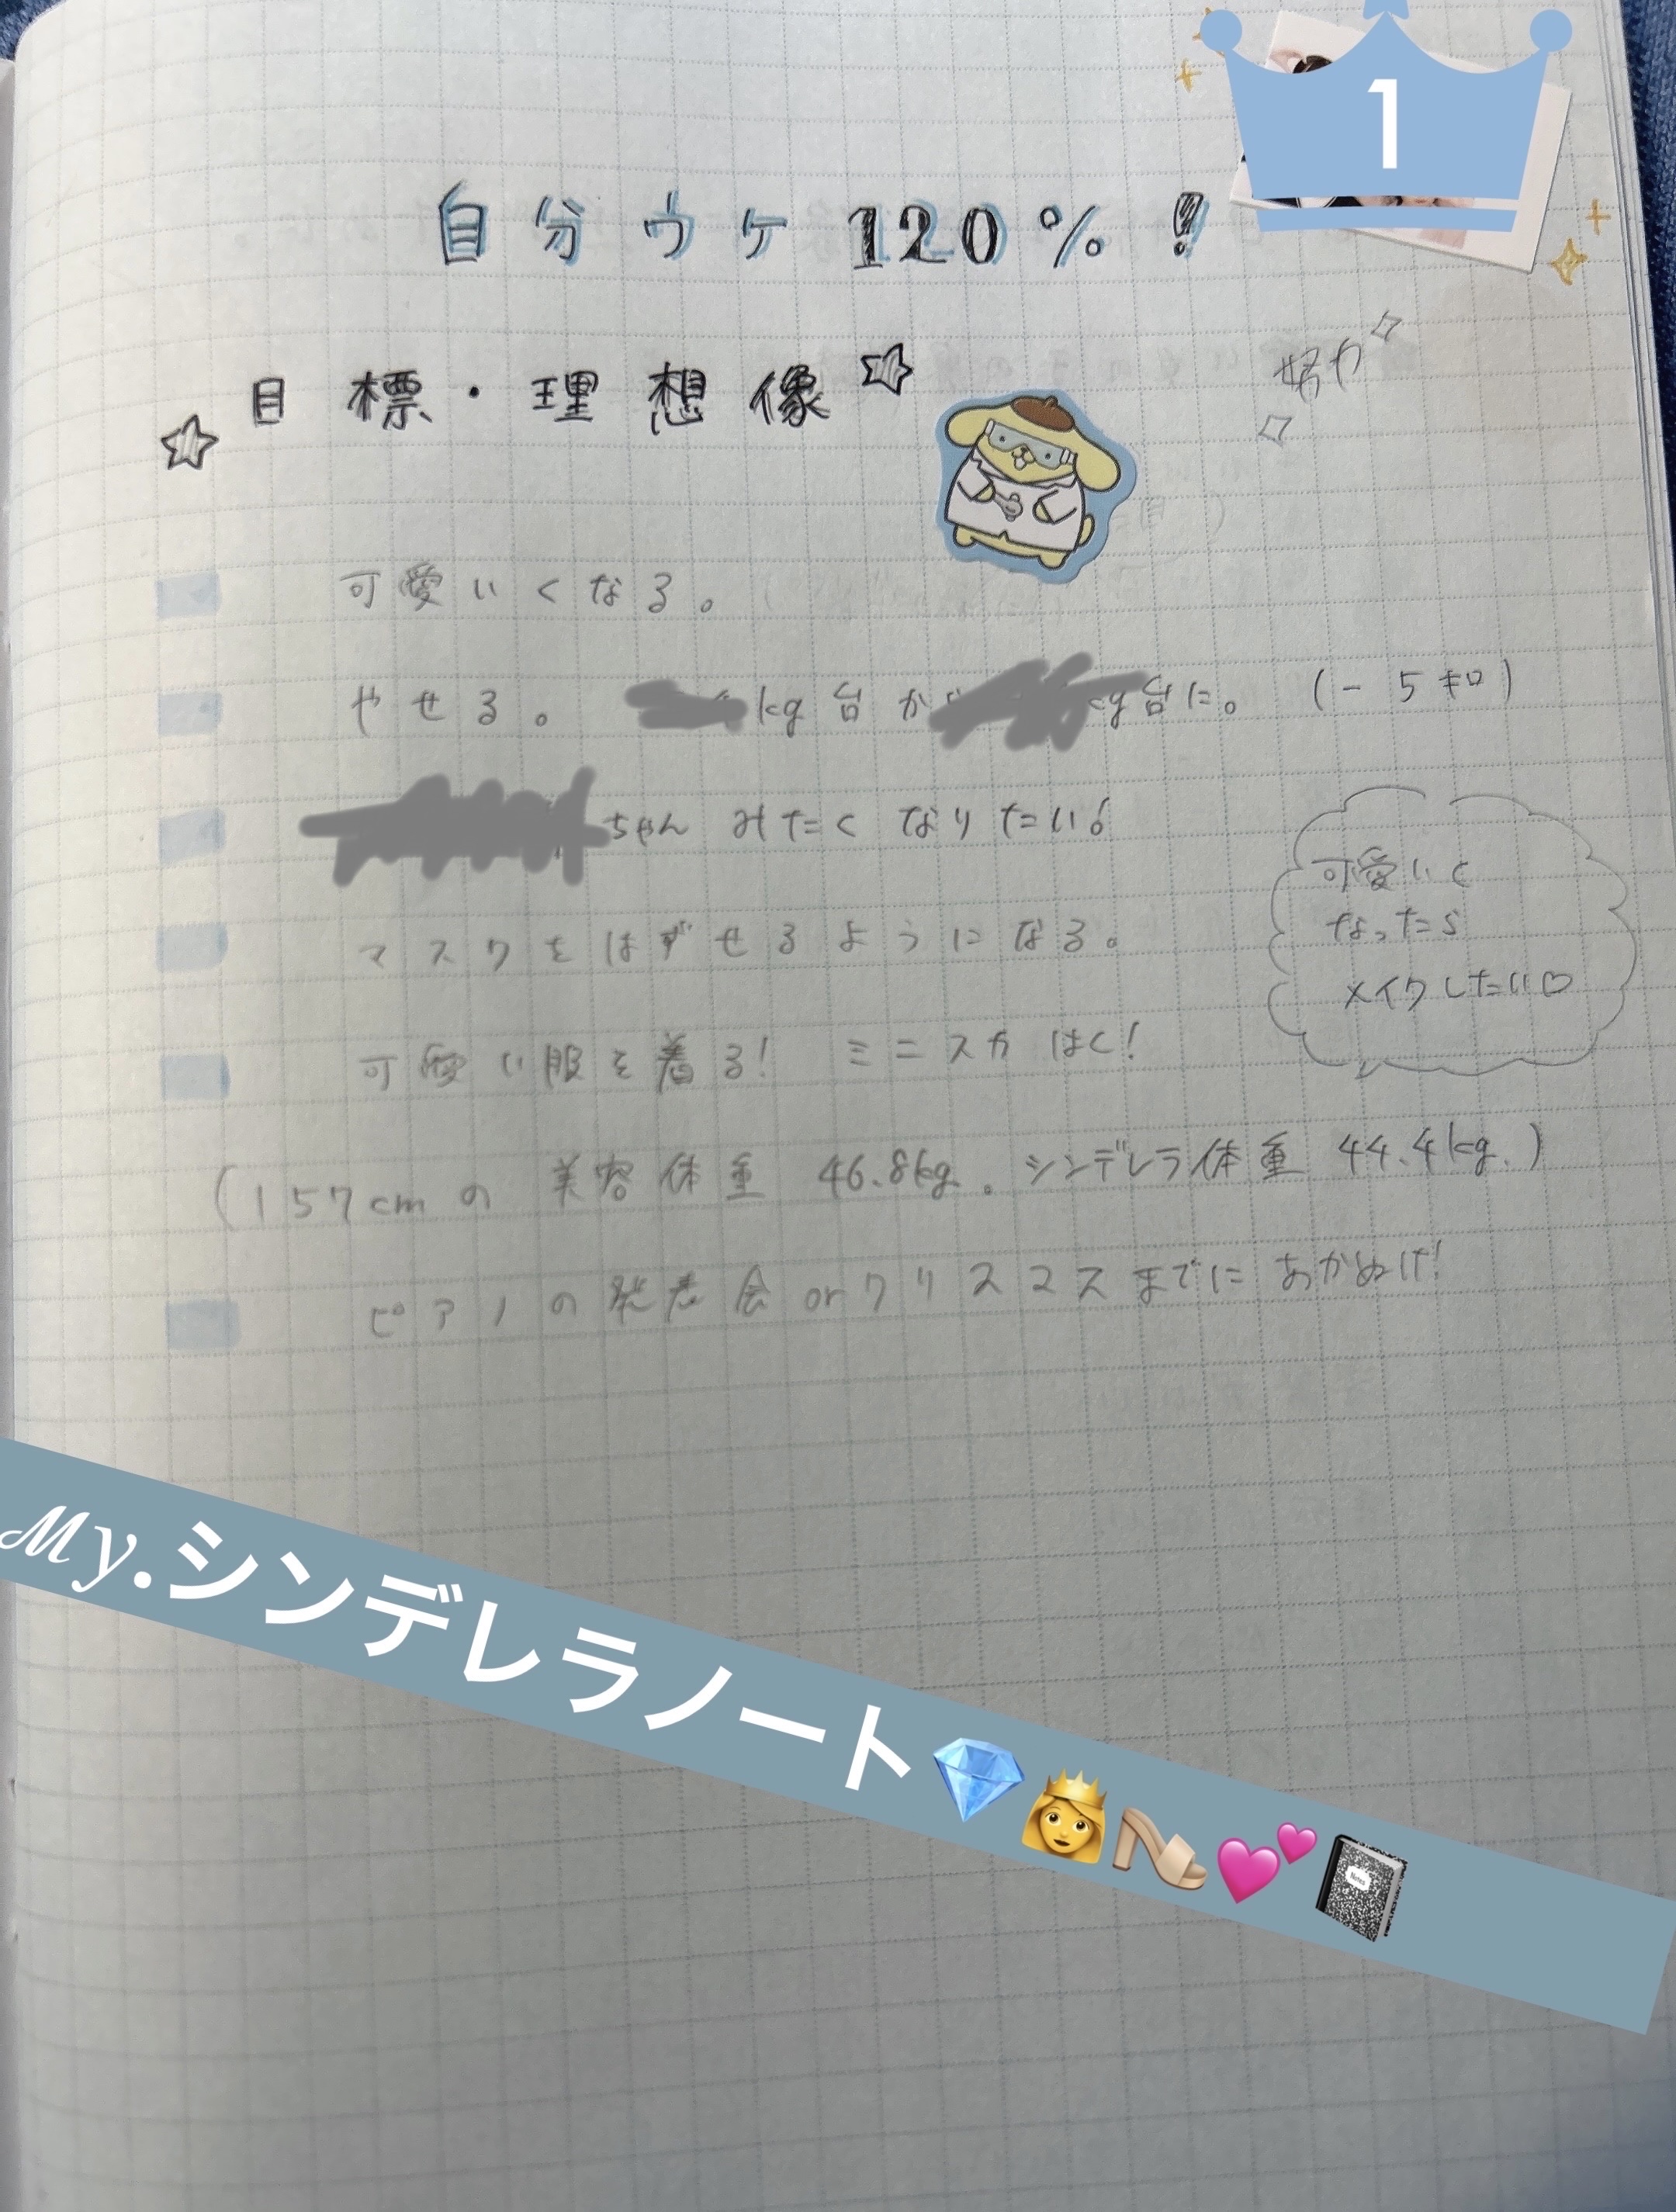 1
自分ウケ120%!
目標・理想像
努力
可愛いくなる。
やせる。 kg台から kg台に。 (-5キロ)
ちゃんみたくなりたい!
マスクをはずせるようになる。
可愛いく
なったら
メイクしたい♡
可愛い服を着る! ミニスカはく!
(157cmの 美容体重 46.8kg。シンデレラ体重 44.4kg.)
ピアノの発表会orクリスマスまでに あかぬけ!
My.シンデレラノート💎👸👡💕📓